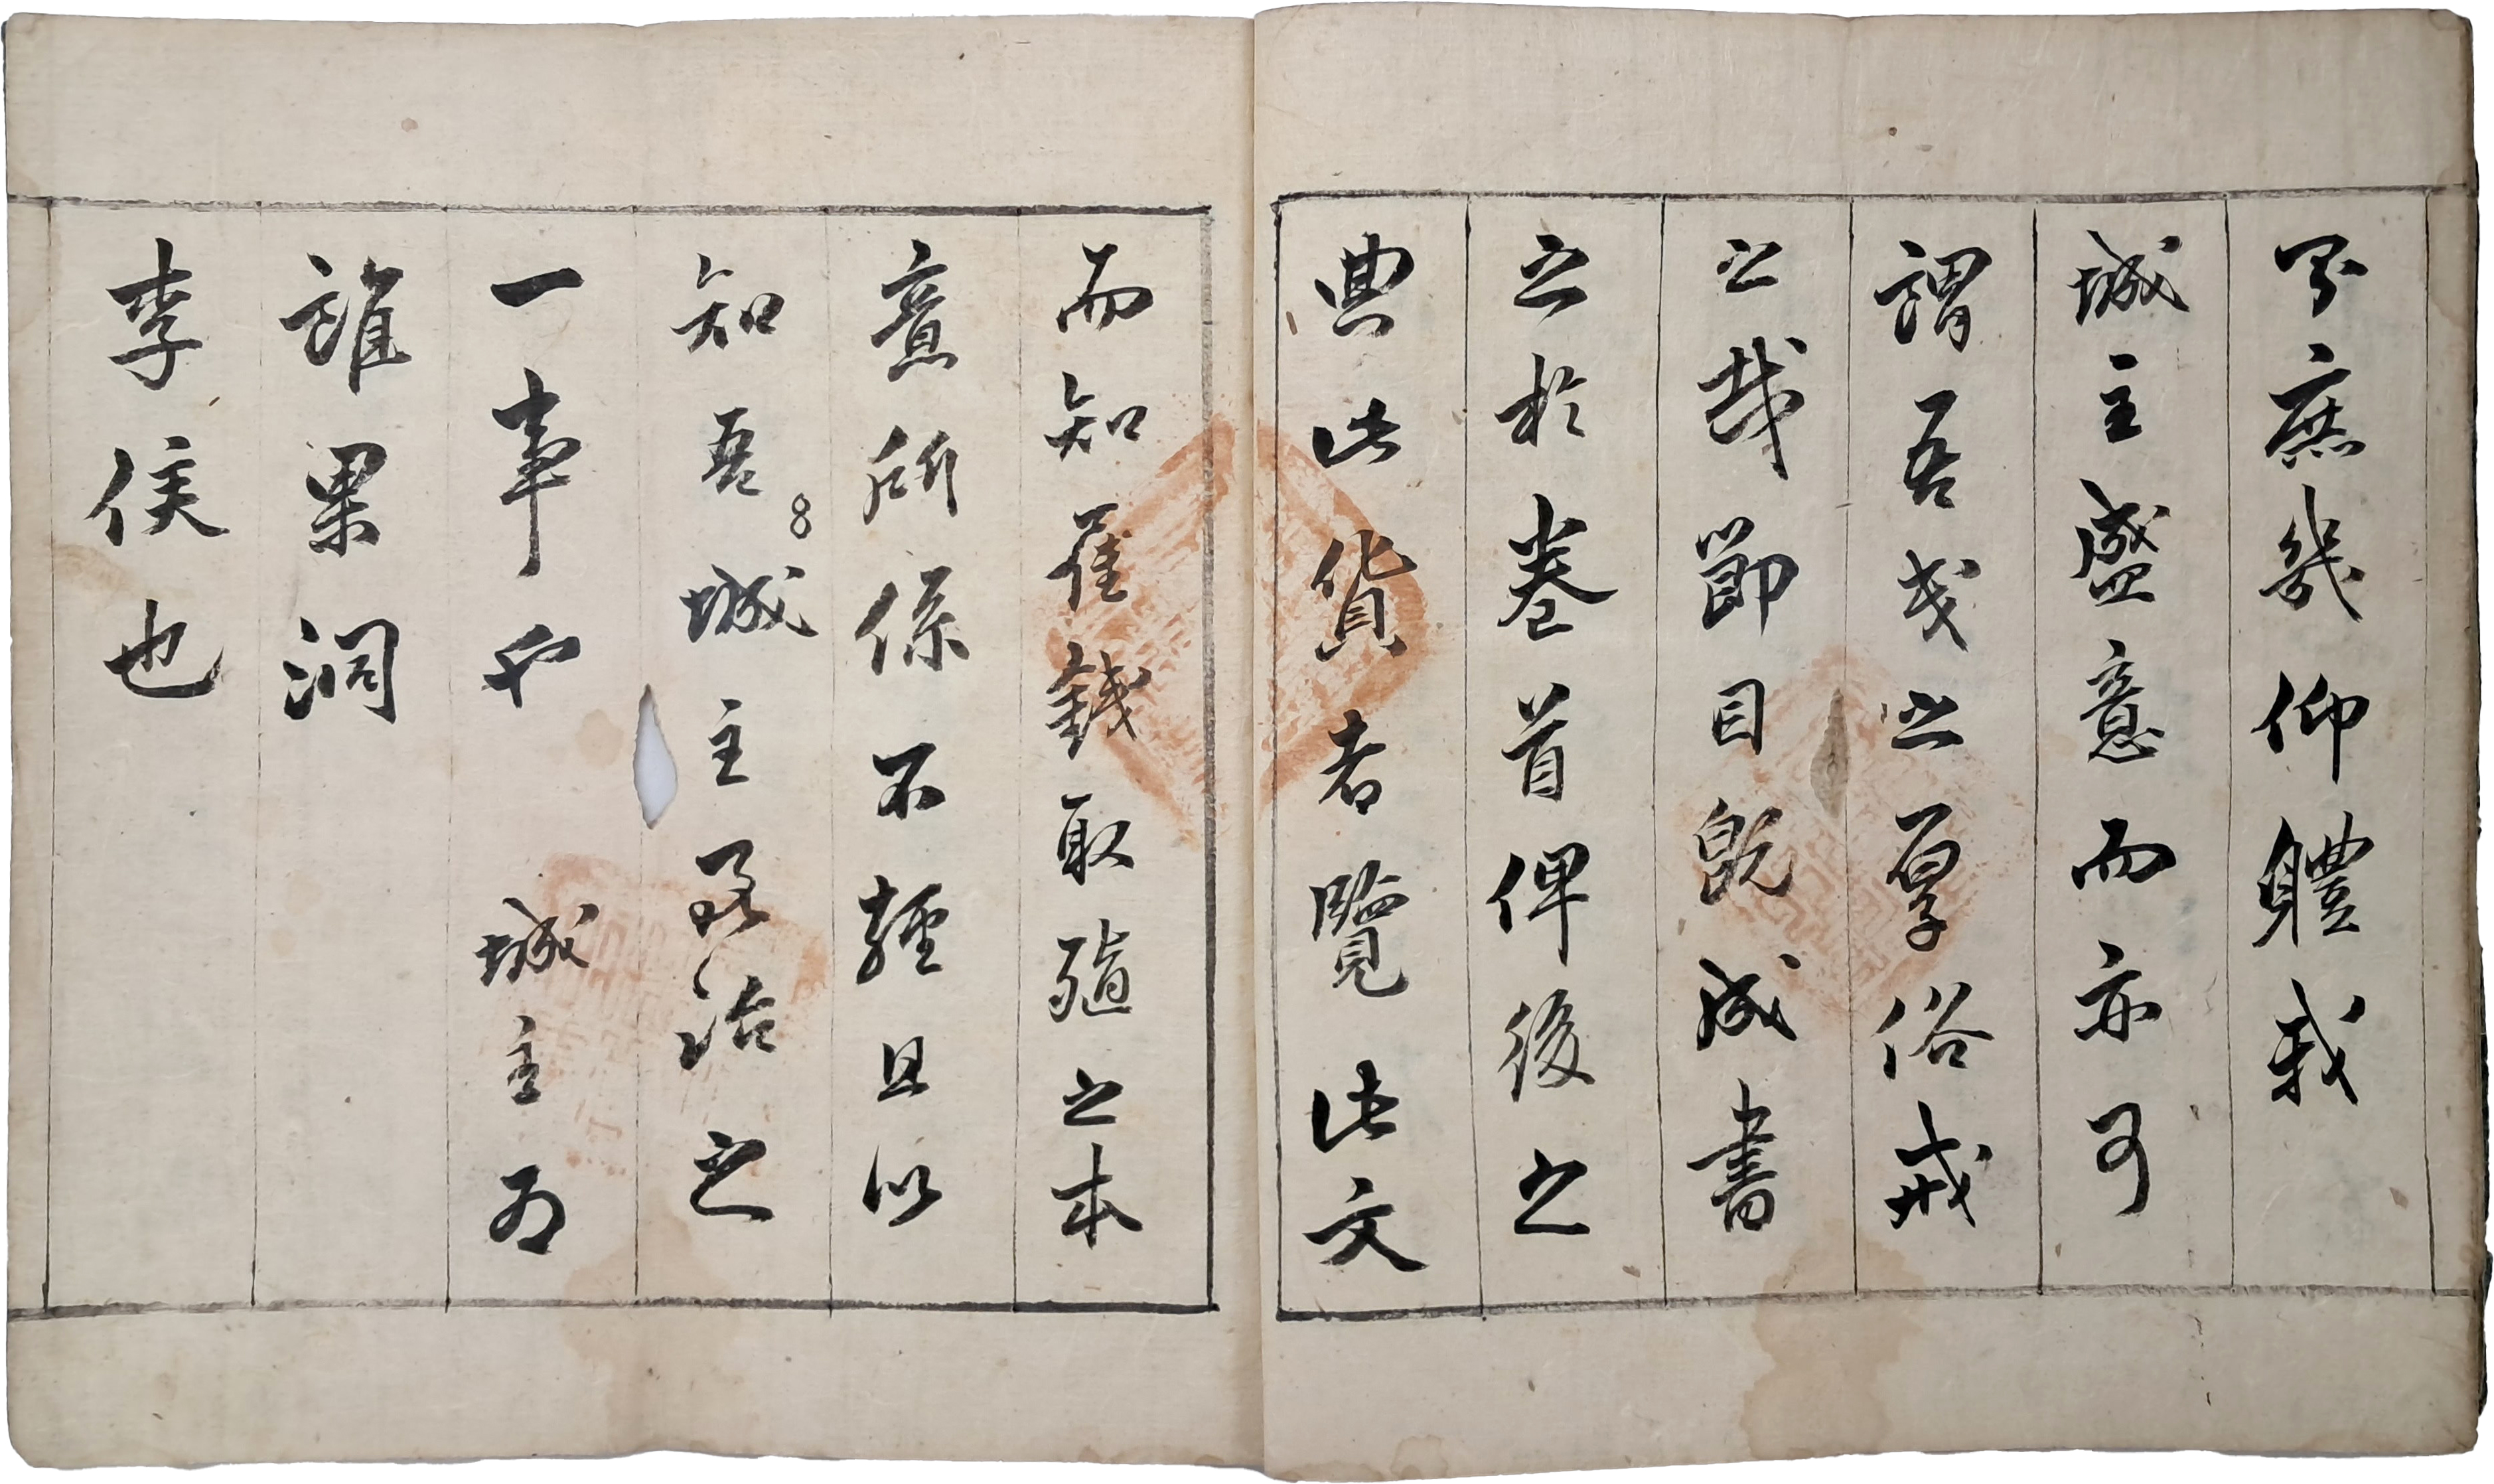 庶幾仰體我
城主盛意而亦可
謂吾之厚俗戒
之哉節目既成書
之於卷首俾後之
典此貨者覽此文
而知錢取殖之本
意所係不輕且以
知吾城主治之
一事也 城主爲
誰果洞
李侯也